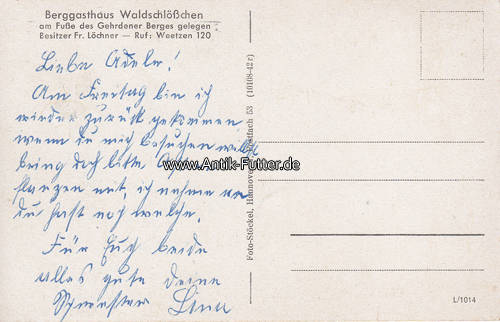 Berggasthaus Waldschlößchen
am Fuße des Gehrdener Berges gelegen
Besitzer Fr. Löchner — Ruf: Weetzen 120
Liebe Adele!
Am Freitag bin ich
wieder zurück gekommen
wenn du mich besuchen willst
bring doch bitte
pflanzen mit, ich nehme an
du hast noch welche.
Für Euch beide
alles gute deine
Schwester
www.Antik-Futter.de
Foto-Stöckel, Hannover Postfach 53 (10168-42r)
L/1014